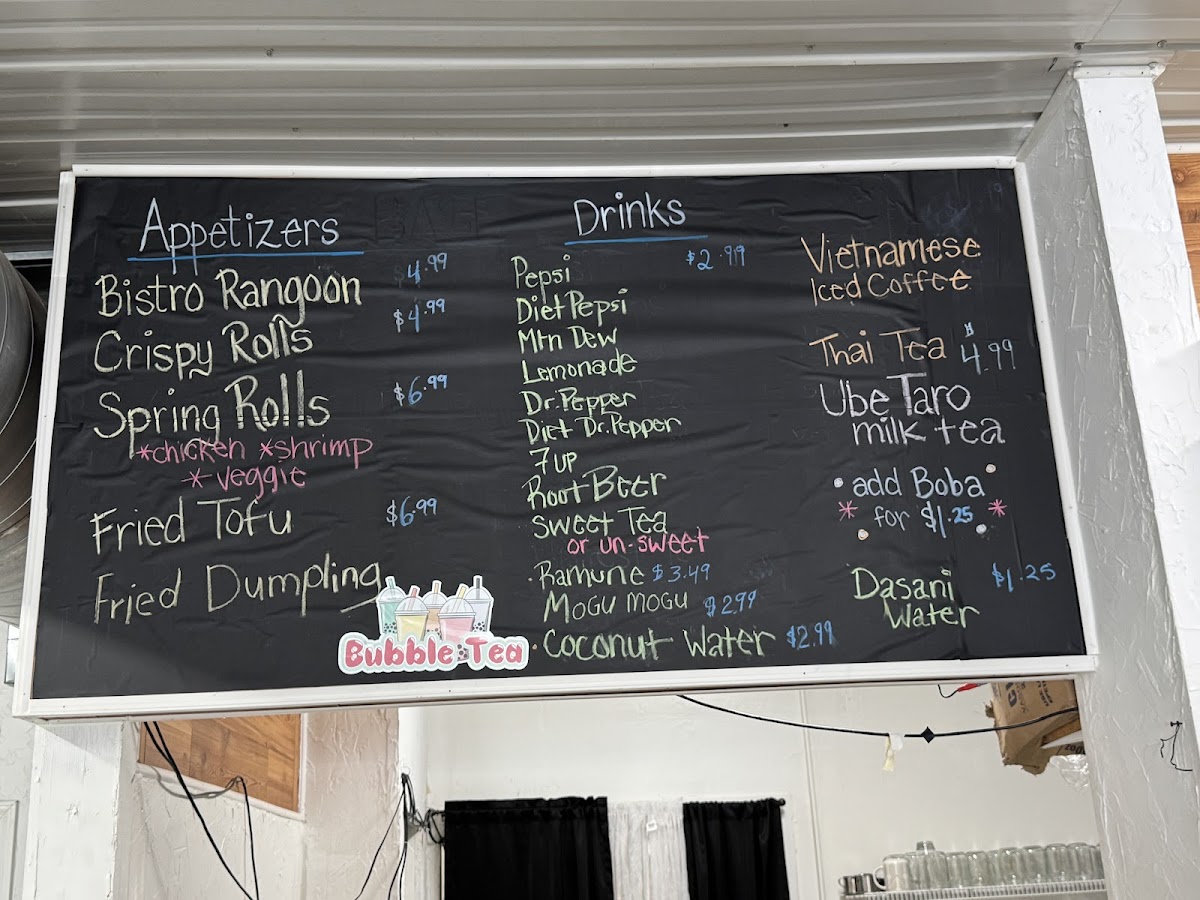 Appetizers
Bistro Rangoon 4.99
Crispy Rolls $4.99
Spring Rolls $6.99
*chicken *shrimp
* veggie
Fried Tofu $6.99
Fried Dumpling
Bubble Tea
Drinks
Pepsi $2.99
Diet Pepsi
Mtn Dew
Lemonade
Dr. Pepper
Diet Dr. Pepper
7 UP
Root Beer
Sweet Tea
or un-sweet
Ramune $3.49
Mogu Mogu $2.99
Coconut Water $2.99
Vietnamese
Iced Coffee
Thai Tea $4.99
Ube Taro
milk tea
add Boba
* for $1.25 *
Dasani $1.25
Water